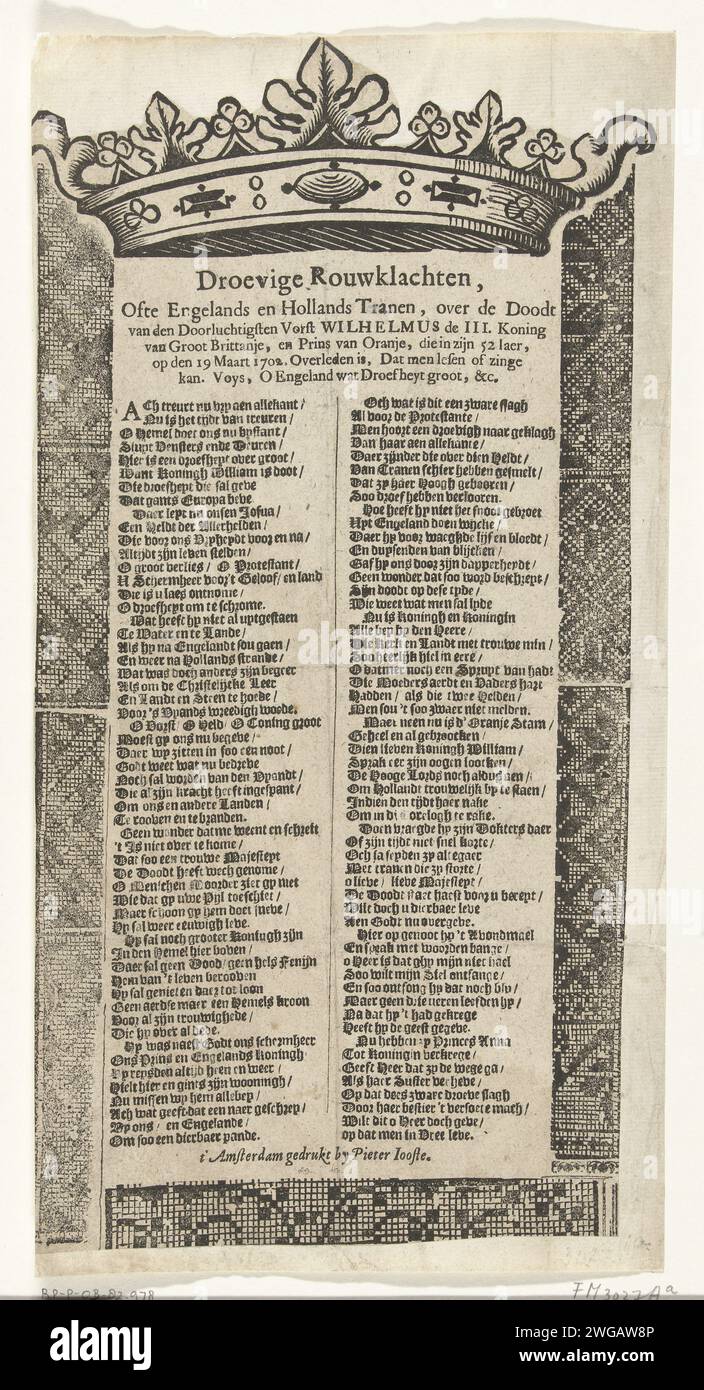 Droevige Rouwklachten,
Ofte Engelands en Hollands Tranen, over de Doodt
van den Doorluchtigsten Vorst WILHELMUS de III. Koning
van Groot Brittanje, en Prins van Oranje, die in zijn 52 Iaer,
op den 19 Maart 1702. Overleden is, Dat men lesen of zinge
kan. Voys, O Engeland wat Droefheyt groot, &c.
ACh treurt nu vry aen allekant /
Nu is het tijdt van treuren /
O Hemel doet ons nu bystant /
Sluyt Vensters ende Deuren /
Hier is een droefheyt over groot /
Want Koningh William is doot /
Die droefheyt die sal geve
Dat gants Europa beve.
Daer leyt nu onsen Josua /
Een Heldt der Allerhelden /
Die voor ons Vryheydt voor en na /
Altijdt zijn leven stelden /
O groot verlies / O Protestant /
U Schermheer voor't Geloof / en land
Die is u laes ontnome /
O droefheyt om te schrome.
Wat heeft hy niet al uytgestaen
Te Water en te Lande /
Als hy na Engelandt sou gaen /
En weer na Hollands strande /
Wat was doch anders zijn begeer
Als om de Christelijcke Leer
En Landt en Steen te hoede /
Voor 's Vyands wreedigh woede.
O Vorst / O Held / O Coning groot
Moest gy ons nu begeve /
Daer wy zitten in soo een noot /
Godt weet wat nu bedreve
Noch sal worden van den Vyandt /
Die al zijn kracht heeft ingespant /
Om ons en andere Landen /
Te rooven en te branden.
Geen wonder datme weent en schreit
't Is niet over te kome /
Dat soo een trouwe Majesteyt
De Doodt heeft wech genome /
O Menschen Moorder ziet gy niet
Wie dat gy uwe Pijl toeschiet /
Maer schoon gy hem doet sneve /
Hy sal weer eeuwigh leve.
Hy sal noch grooter Koningh zijn
In den Hemel hier boven /
Daer sal geen Dood / geen hels Fenijn
Hem van 't leven berooven
Hy sal genieten daer tot loon
Geen aerdse maer een Hemels kroon
Voor al zijn trouwighede /
Die hy over al dede.
Hy was naest Godt ons schermheer
Ons Prins en Engelands Koningh
Hy reysden altijd heen en weer /
Hielt hier en gints zijn wooningh /
Nu missen wy hem allebey /
Ach wat geeft dat een naer geschrey /
Ay ons / en Engelande /
Om soo een dierbaer pande.
Och wat is dit een zware slagh
Al voor de Protestante /
Men hoort een droevigh naar geklagh
Van haar aen allekante /
Daer zijnder die over dien Heldt /
Van Tranen schier hebben gesmelt /
Dat zy haer Hoogh gebooren /
Soo droef hebben verlooren.
Hoe heeft hy niet het snoot gebroet
Uyt Engeland doen wijcke /
Daer hy voor waeghde lijf en bloedt /
En duysenden van blijcken /
Gaf hy ons door zijn dapperheydt /
Geen wonder dat soo word beschreyt /
Sijn doodt op dese tyde /
Wie weet wat men sal lyde
Nu is Koningh en Koningin
Alle bey by den Heere /
Die Kerk en Landt met trouwe min /
Soo heerlijk hiel in eere /
O datmer noch een Spruyt van hadt
Die Moeders aerdt en Vaders hart
Hadden / als die twee Helden /
Men sou't soo zwaer niet melden.
Maer neen nu is d'Oranje Stam /
Geheel en al gebroocken /
Dien lieven Koningh William /
Sprak eer zijn oogen loocken /
De Hooge Lords noch aldus aen /
Om Hollandt trouwelijk by te staen /
Indien den tijdt haer nake
Om in die oorelogh te rake.
Doen vraegde hy zijn Dokters daer
Of zijn tijdt niet snel korte /
Och ja seyden zy allegaer
Met tranen die zy storte /
o lieve / lieve Majesteyt /
De Doodt staet haest voor u bereyt /
Wilt doch u dierbaer leve
Aen Godt nu overgebe.
Hier op genoot hy 't Avondmael
En sprak met woorden bange /
o Heer is dat ghy mijn niet hael
Soo wilt mijn Siel ontfange /
En soo ontfong hy dat noch bly /
Maer geen drie ueren leefden hy /
Na dat hy 't had gekrege
Heeft hy de geest gegeve.
Nu hebben zy Princes Anna
Tot Koningin verkrege /
Geeft Heer dat zy de wege ga /
Als haer Suster beheve /
Op dat dees zware droeve slagh
Door haer bestier 't versoete mach /
Wilt dit o Heer doch geve /
op dat men in Vree leve.
t'Amsterdam gedrukt by Pieter Iooste.
RP-P-OB-82.978
FM3027Aa
alamy
Image ID: 2WGAW8P
www.alamy.com